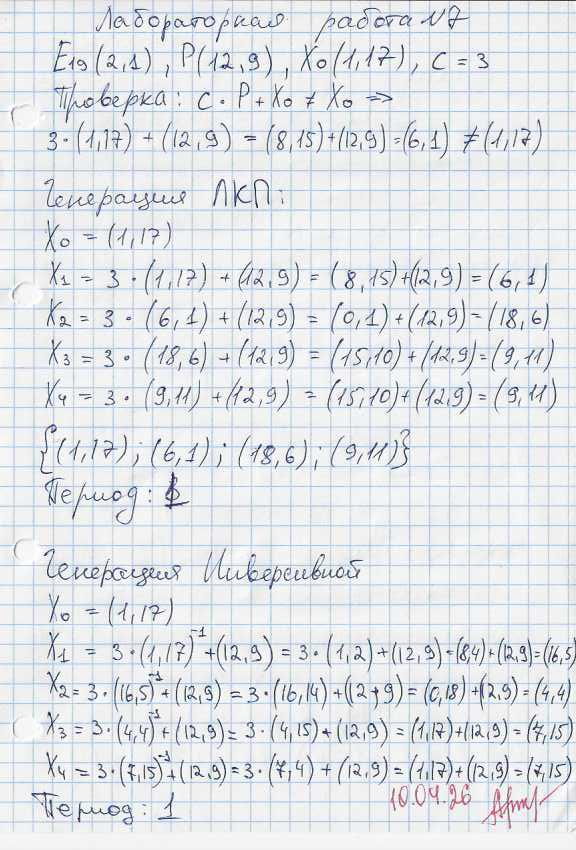 Лабораторная работа №7
E₁₉(2,1), P(12,9), X₀(1,17), c = 3
Проверка: c · P + X₀ ≠ X₀ =>
3·(1,17) + (12,9) = (8,15)+(12,9)=(6,1) ≠(1,17)
Генерация ЛКП:
X₀ = (1,17)
X₁ = 3·(1,17) +(12,9) = (8,15)+(12,9) = (6,1)
X₂ = 3·(6,1)+(12,9) = (0,1)+(12,9)=(18,6)
X₃ = 3·(18,6)+(12,9)=(15,10)+(12,9)=(9,11)
X₄ = 3·(9,11)+(12,9) =(15,10)+(12,9)=(9,11)
{(1,17);(6,1);(18,6);(9,11)}
Период:
Генерация Инверсивной
X₀ = (1,17)
X₁ = 3·(1,17)⁻¹+(12,9)=3·(1,2)+(12,9)=(8,4)+(12,9)=(16,5)
X₂=3·(16,5)⁻¹+(12,9)=3·(16,14)+(12,9)=(0,18)+(12,9)=(4,4)
X₃=3·(4,4)⁻¹+(12,9)=3·(4,15)+(12,9)=(1,17)+(12,9)=(7,15)
X₄=3·(7,15)⁻¹+(12,9)=3·(7,4)+(12,9)=(1,17)+(12,9)=(7,15)
Период: 1
10.04.26